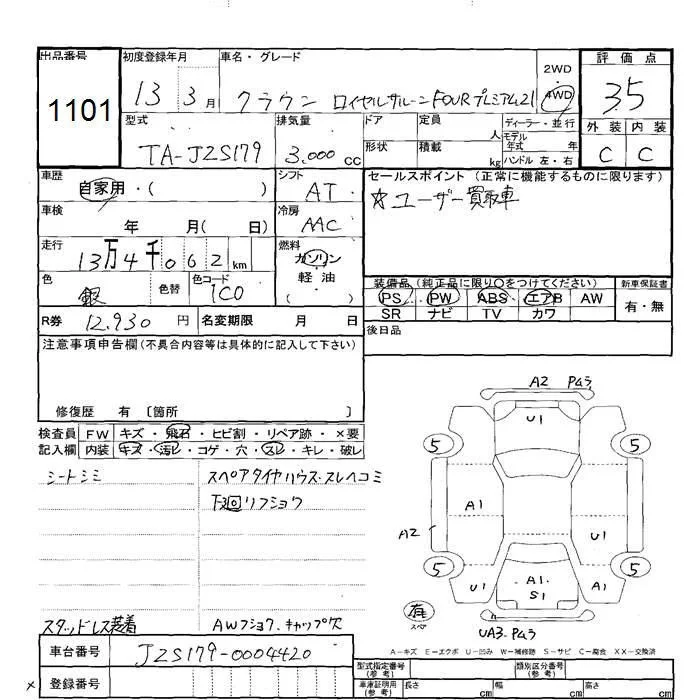 出品番号 初度登録年月 車名・グレード 評価点
1101
13 3月 クラウン ロイヤルサルーンFOURプレミアム21
2WD
4WD
35
外装 内装
C C
型式 排気量 ドア 定員 人 ディーラー・並行
TA-JZS179 3,000 CC 形状 積載 kg モデル年式 年
ハンドル 左・右
車歴 シフト セールスポイント (正常に機能するものに限ります)
自家用・( ) AT ☆ユーザー買取車
車検 年 月( 日) 冷房 AAC
走行 13万4千062km 燃料 ガソリン・軽油
( )
色 銀 色替 色コード 1C0
装備品(純正品に限り○をつけてください) 新車保証書
PS PW ABS エアB AW 有・無
SR ナビ TV カワ
R券 12,930 円 名変期限 月 日 後日品
注意事項申告欄(不具合内容等は具体的に記入して下さい)
修復歴 有 〔箇所 〕
検査員 FW キズ・飛石・ヒビ割・リペア跡・×要
記入欄 内装 キズ・汚レ・コゲ・穴・スレ・キレ・破レ
シートシミ スペアタイヤハウス・スレヘコミ
下廻リフショウ
スタッドレス装着 AWフショク、キャップ欠
A2 PAラ
U1
5 5
A1
A2 U1
5 5
U1 A1 S1 A1
有
スペア
UA3. PAラ
A-キズ E-エクボ U-凹み W-補修跡 S-サビ C-腐食 XX-交換済
車台番号 JZS179-0004420
× 登録番号
型式指定番号(参考) 類別区分番号(参考)
車庫証明用(参考) 長さ cm 幅 cm 高さ cm